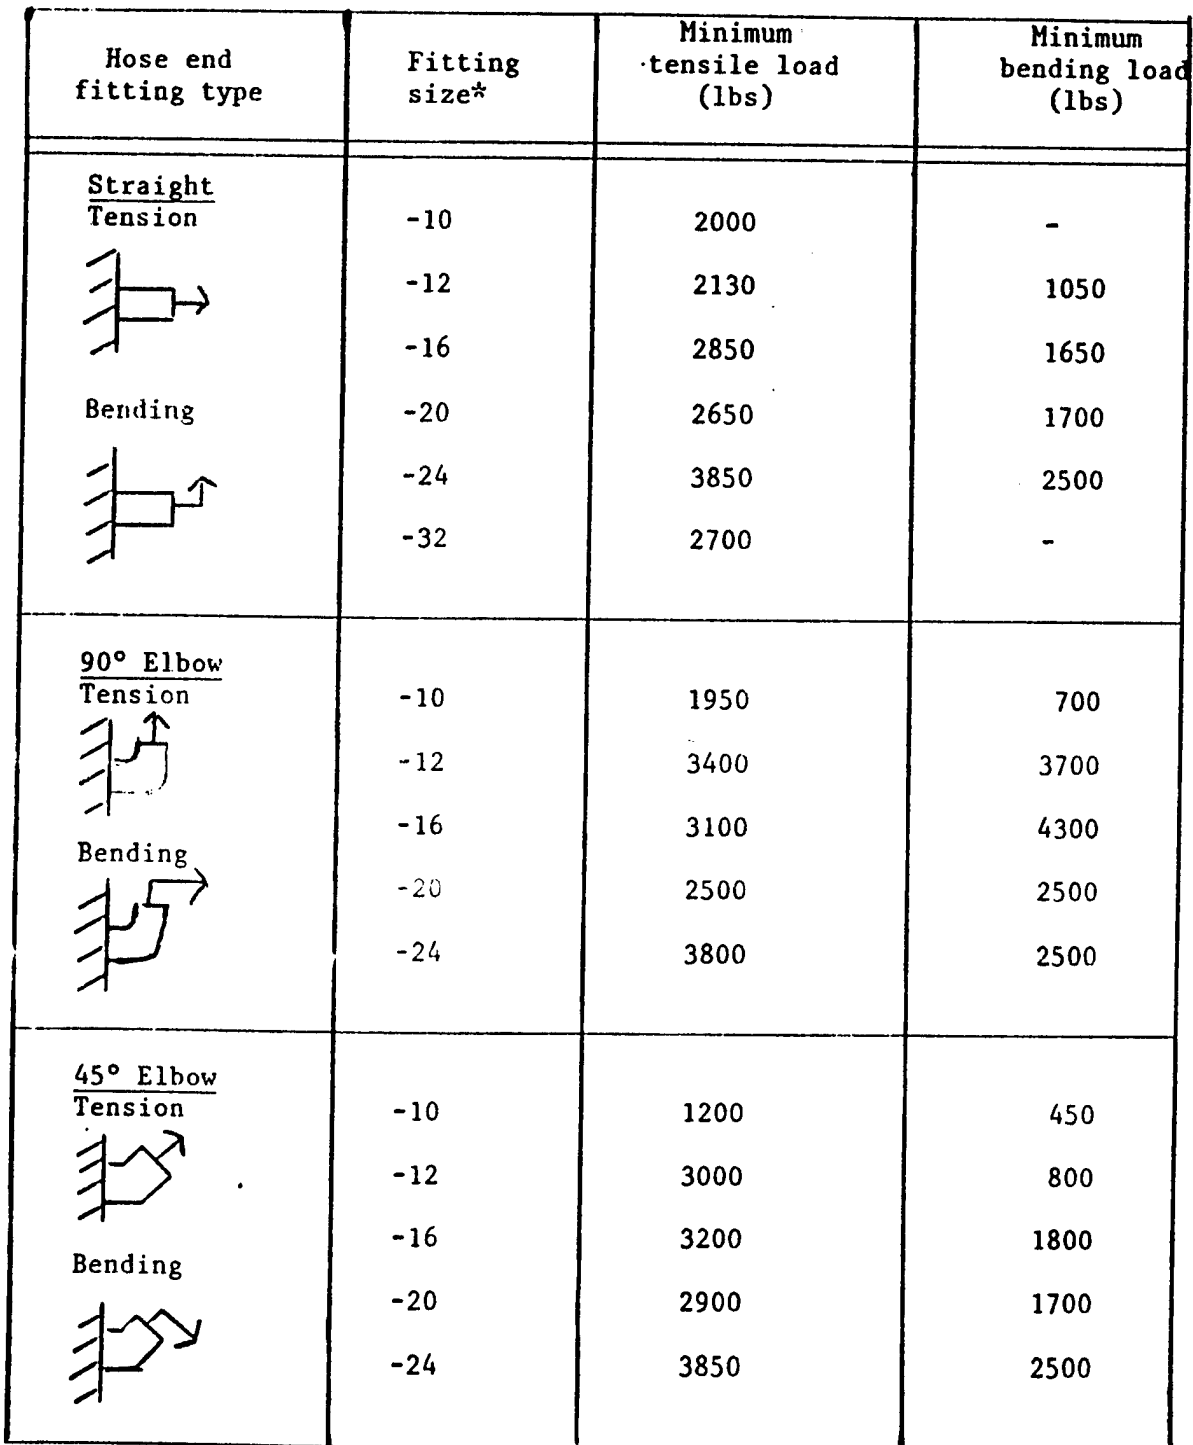 Hose end
fitting type
Fitting
size*
Minimum
tensile load
(lbs)
Minimum
bending load
(lbs)
Straight
Tension
-10 2000 -
-12 2130 1050
-16 2850 1650
Bending
-20 2650 1700
-24 3850 2500
-32 2700 -
90° Elbow
Tension
-10 1950 700
-12 3400 3700
-16 3100 4300
Bending
-20 2500 2500
-24 3800 2500
45° Elbow
Tension
-10 1200 450
-12 3000 800
-16 3200 1800
Bending
-20 2900 1700
-24 3850 2500